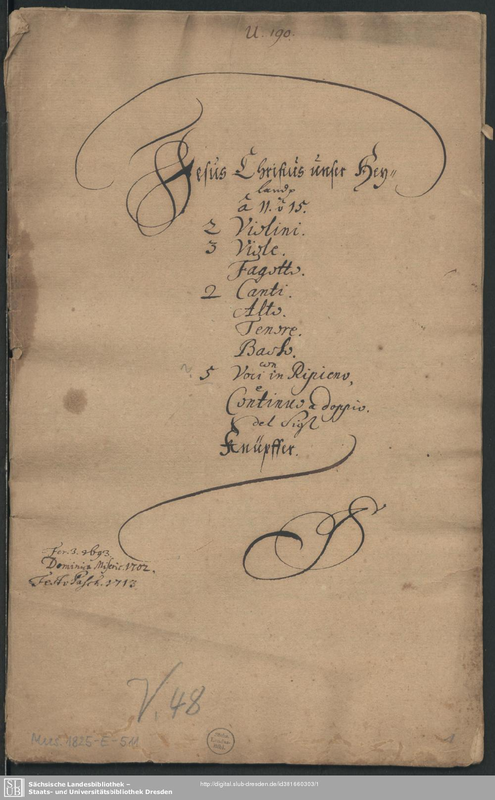 U. 190.
Jesus Christus unser Hey=
land
à 11. ô 15.
2 Violini.
3 Viole.
Fagotto.
2 Canti.
Alto.
Tenore.
Basso.
con
5 Voci in Ripieno,
e
Continuo a doppio.
del Sigr
Knüpffer.
Dominica Miseric 1702.
Pasch. 1713.
V. 48
Mus. 1825-E-511
1
SLUB
Sächsische Landesbibliothek –
Staats- und Universitätsbibliothek Dresden
http://digital.slub-dresden.de/id381860303/1